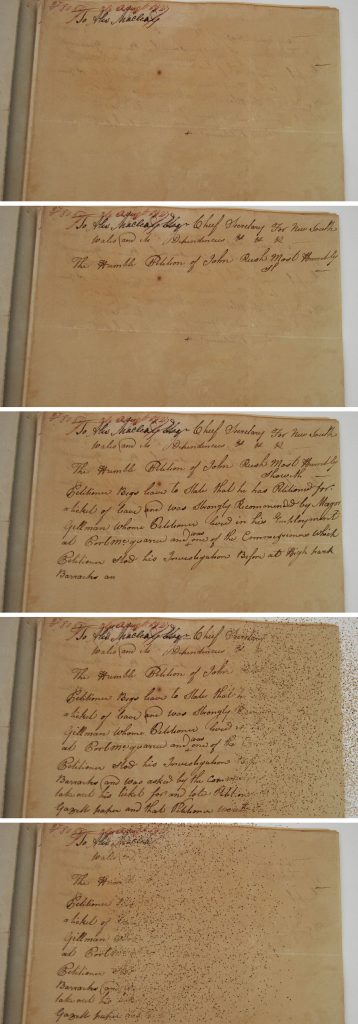 To Alex Macleay
To Alex Macleay Esqr Chief Secretary For New South
Wales and its Dependencies & & &
The Humble Petition of John Rush Most Humbly
Sh
To Alex Macleay Esqr Chief Secretary For New South
Wales and its Dependencies & & &
The Humble Petition of John Rush Most Humbly
Showeth
Petitioner Begs leave to State that he has Petitioned for
a ticket of leave and was Strongly Recomended by Mayor
Gillman whome Petitioner lived in his Employment
at and was one of the Which
Petitioner Had his Investigation Before at High park
Barracks an
To Alex Macleay Esqr Chief Secretary
Wales and its Dependencies
The Humble Petition of John
Petitioner Begs leave to State that
a ticket of leave and was Strongly
Gillman whome Petitioner lived
at and was one of the
Petitioner Had his Investigation
Barracks and was asked by the
take out his ticket for and late
Gazett paper and that Petitioner
To Alex Macleay
Wales
The Hum
Petitioner
a ticket of
Gillman
at
Petitioner
Barracks and
take out his
Gazett paper